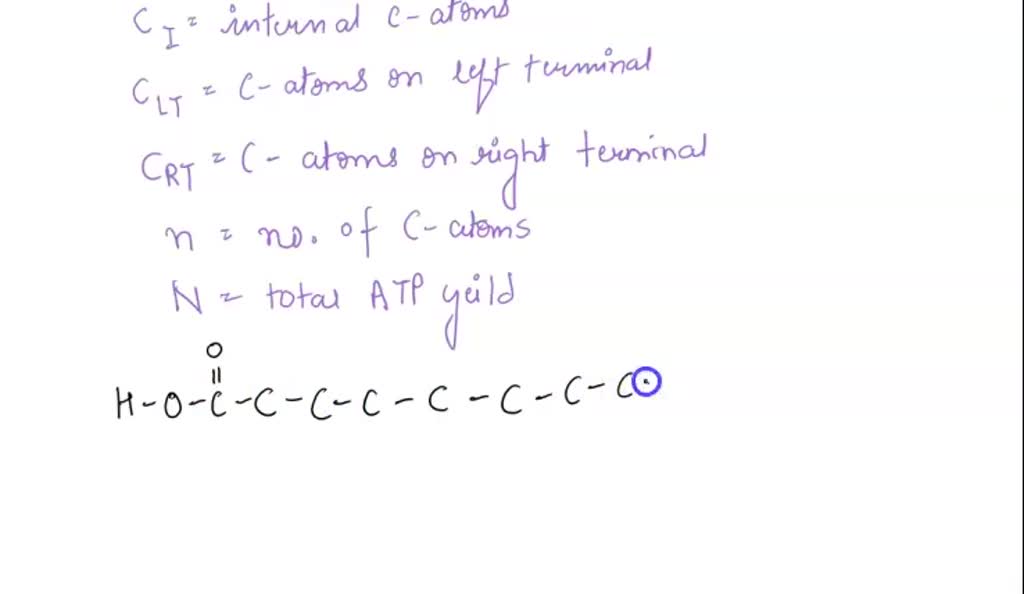 C_I = internal C-atoms
C_LT = C-atoms on left terminal
C_RT = C- atoms on right terminal
n = no. of C-atoms
N = total ATP yeild
O
||
H-O-C-C-C-C-C-C-C-C